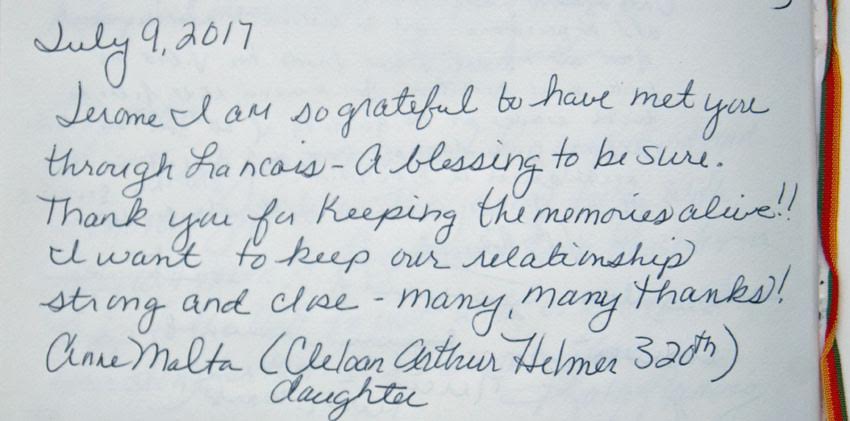 July 9, 2017
Jerome I am so grateful to have met you
through Francois - A blessing to be sure.
Thank you for Keeping the memories alive!!
I want to keep our relationship
strong and close - many, many thanks!
Anne Malta (Arthur Helmer 320th)
daughter